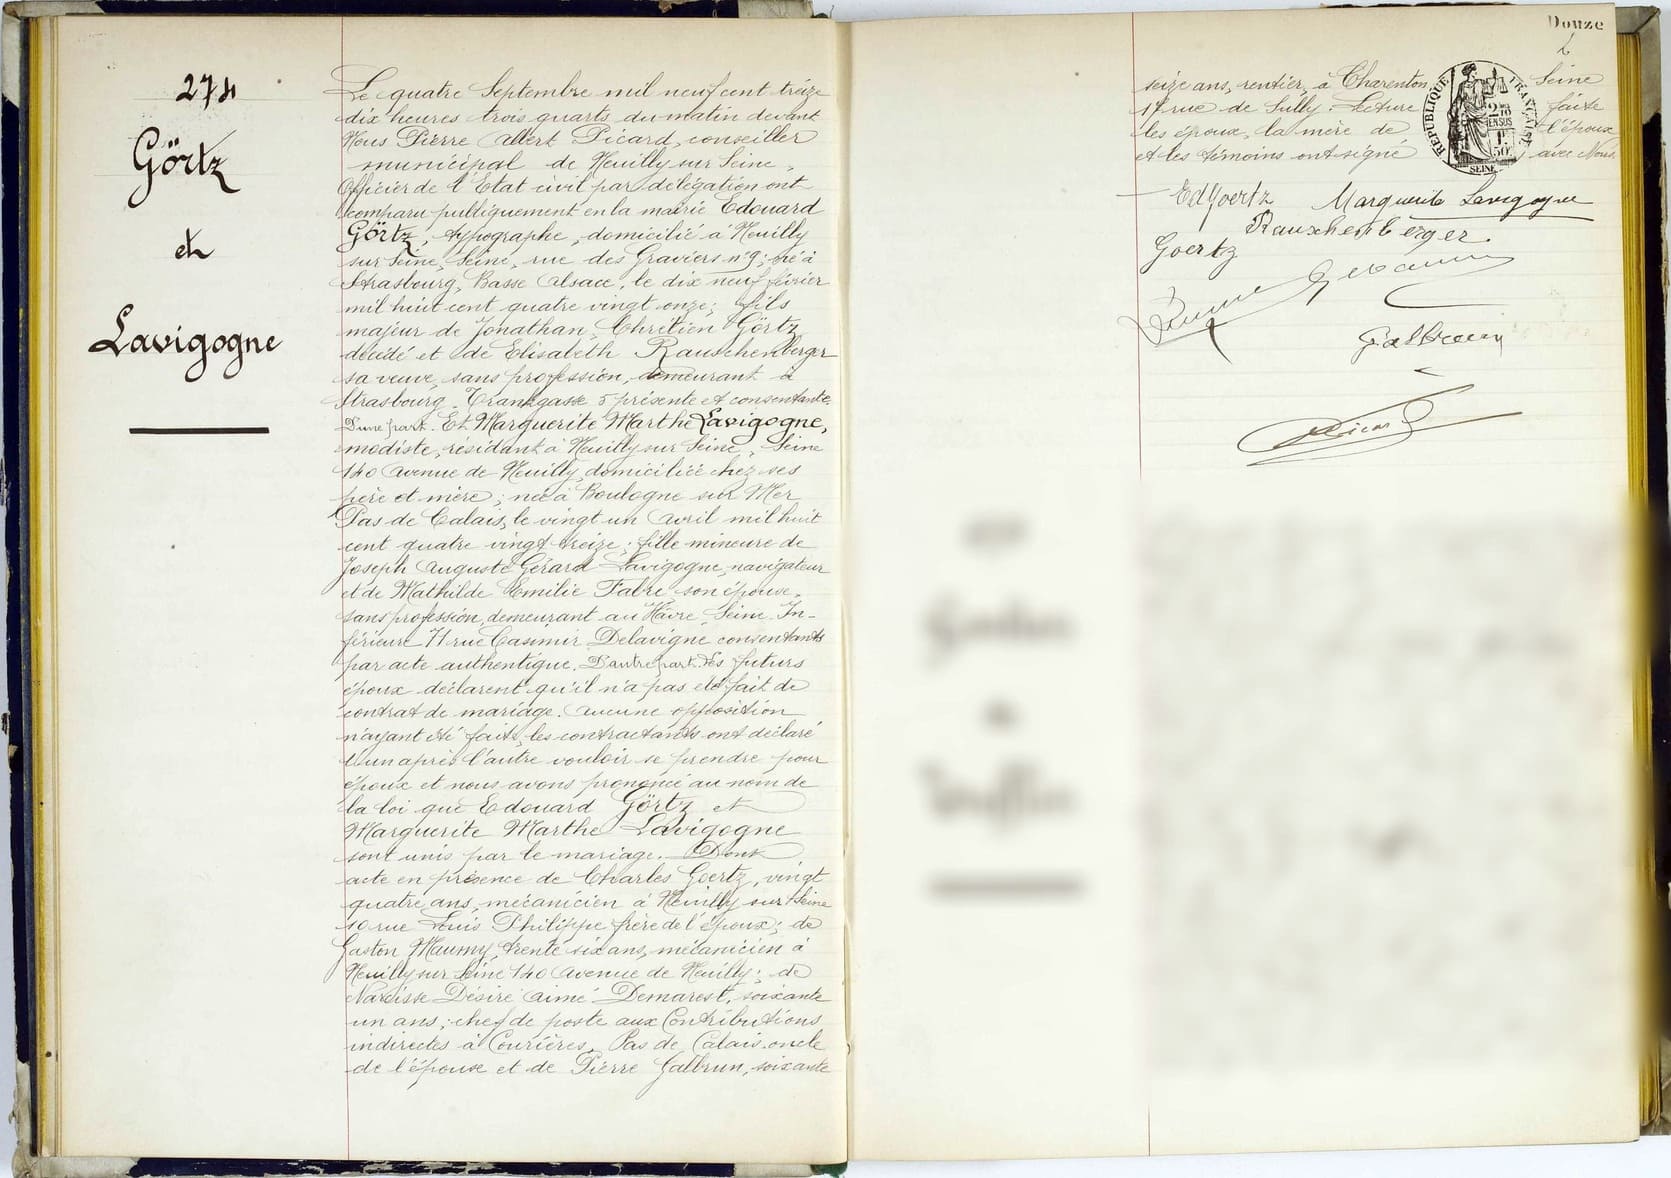 274
Görtz
et
Lavigogne
Le quatre Septembre mil neuf cent treize
dix heures trois quarts du matin devant
Nous Pierre Albert Picard, conseiller
municipal de Neuilly sur Seine,
Officier de l'Etat civil par délégation ont
comparu publiquement en la mairie Edouard
Görtz, typographe, domicilié à Neuilly
sur Seine, Seine, rue des Graviers n°9; né à
Strasbourg, Basse Alsace, le dix neuf février
mil huit cent quatre vingt onze; fils
majeur de Jonathan, Chrétien Görtz
décédé et de Elisabeth Rauschenberger
sa veuve, sans profession, demeurant à
Strasbourg, 5 présente et consentante.
D'une part. Et Marguerite Marthe Lavigogne,
modiste, résidant à Neuilly sur Seine, Seine
140 avenue de Neuilly, domiciliée chez ses
père et mère; née à Boulogne sur Mer
Pas de Calais, le vingt un avril mil huit
cent quatre vingt treize; fille mineure de
Joseph Auguste Gérard Lavigogne, navigateur
et de Mathilde Emilie Fabre son épouse,
sans profession, demeurant au Havre, Seine In-
férieure 71 rue Casimir Delavigne consentants
par acte authentique. D'autre part. Les futurs
époux déclarent qu'il n'a pas été fait de
contrat de mariage. Aucune opposition
n'ayant été faite, les contractants ont déclaré
l'un après l'autre vouloir se prendre pour
époux et nous avons prononcé au nom de
la loi que Edouard Görtz et
Marguerite Marthe Lavigogne
sont unis par le mariage. Dont
acte en présence de Charles Goertz, vingt
quatre ans, mécanicien à Neuilly sur Seine
10 rue Louis Philippe frère de l'époux; de
Gaston Maumy, trente six ans, mécanicien à
Neuilly sur Seine 140 avenue de Neuilly; de
Narcisse Désiré Aimé Demarest, soixante
un ans; chef de poste aux Contributions
indirectes à Courières, Pas de Calais, oncle
de l'épouse et de Pierre Galbrun, soixante
Douze
seize ans, rentier, à Charenton Seine
rue de Sully. Lecture faite
les époux, la mère de l'époux
et les témoins ont signé avec Nous
RÉPUBLIQUE FRANÇAISE
SEINE
EdGoertz Marguerite Lavigogne
Rauschenberger
Goertz
Picard